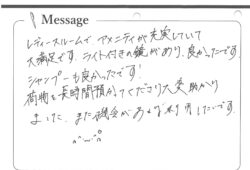 Message
レディースルームで アメニティが充実していて
大満足です。ライト付きの鏡があり、良かったです。
シャンプーも良かったです!
荷物を長時間預かってくださり大変助かり
ました。また機会があれば利用したいです。